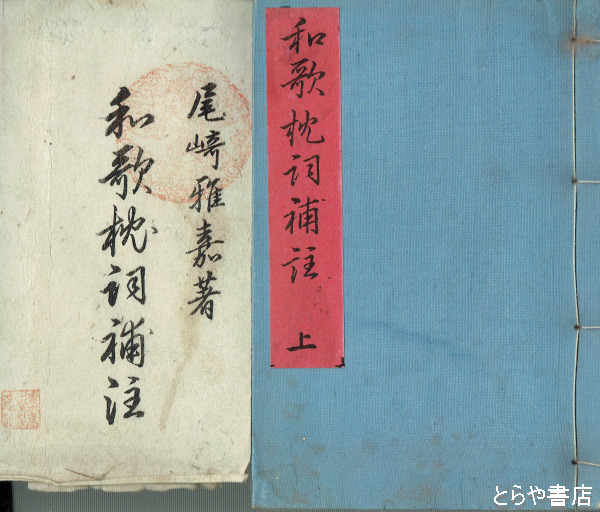 和歌枕詞補註
上
尾崎雅嘉著
和歌枕詞補注
とらや書店